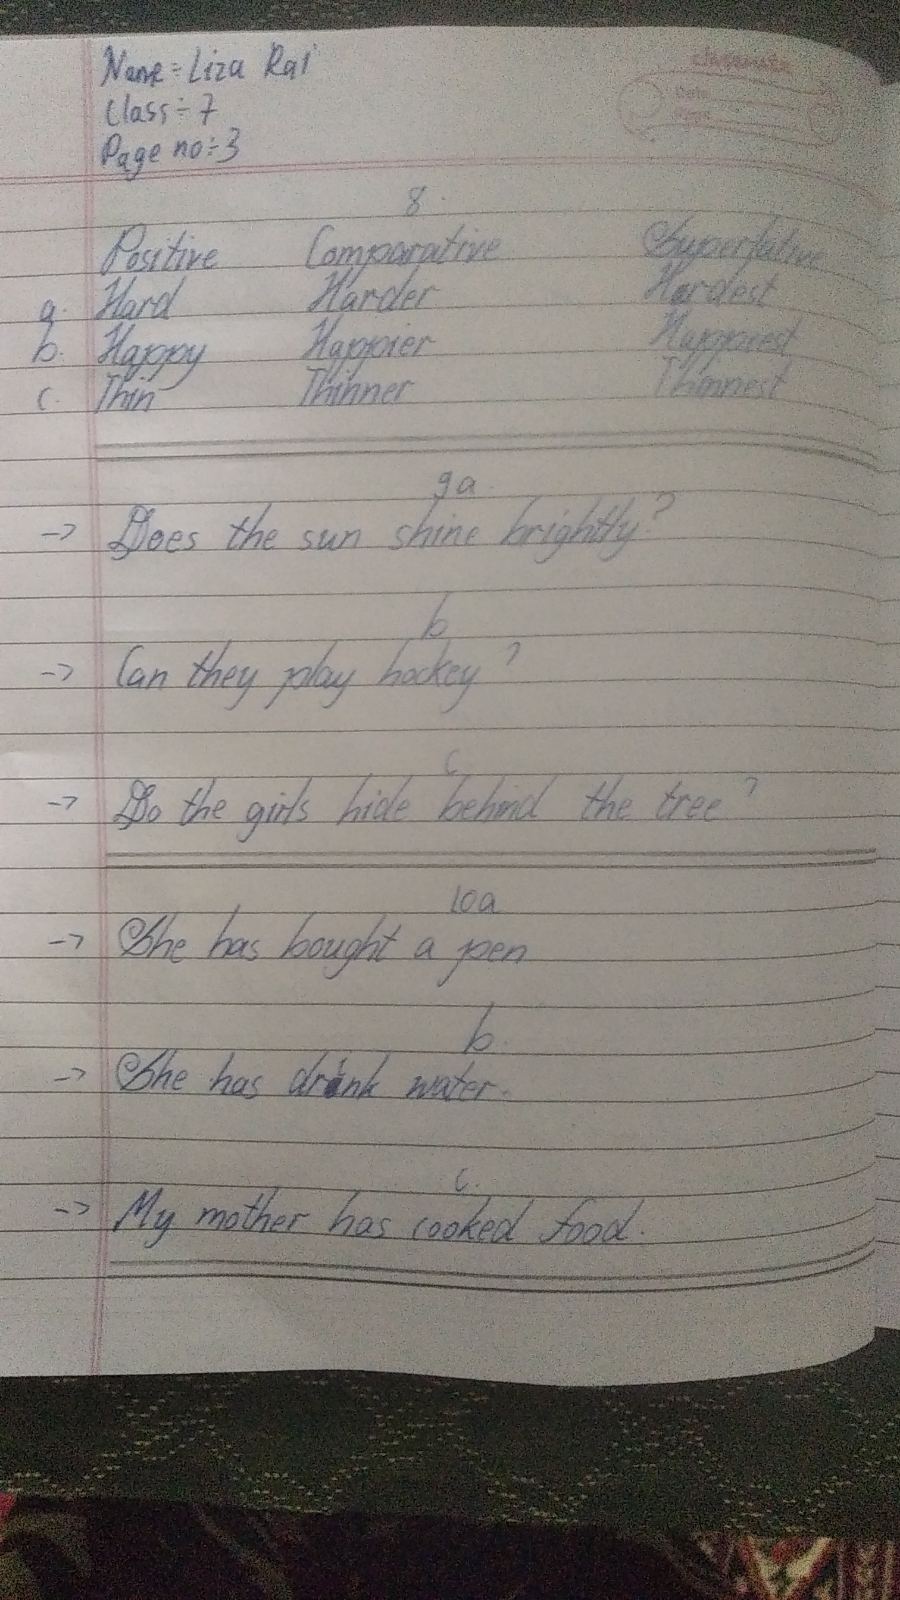 classmate
Date
Page
Name÷Liza Rai
Class÷7
Page no÷3
8.
Positive Comparative Superlative
a. Hard Harder Hardest
b. Happy Happier Happiest
c. Thin Thinner Thinnest
9a.
-> Does the sun shine brightly?
b
-> Can they play hockey?
c
-> Do the girls hide behind the tree?
10a
-> She has bought a pen
b.
-> She has drink water.
c.
-> My mother has cooked food.